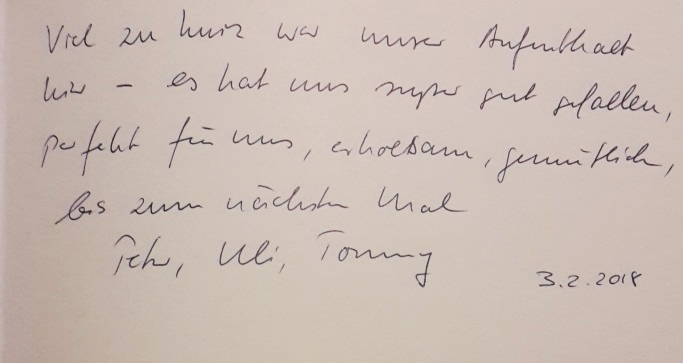 Viel zu kurz war unser Aufenthalt
hier – es hat uns super gut gefallen,
perfekt für uns, erholsam, gemütlich,
bis zum nächsten Mal
Peter, Uli, Tommy
3.2.2018